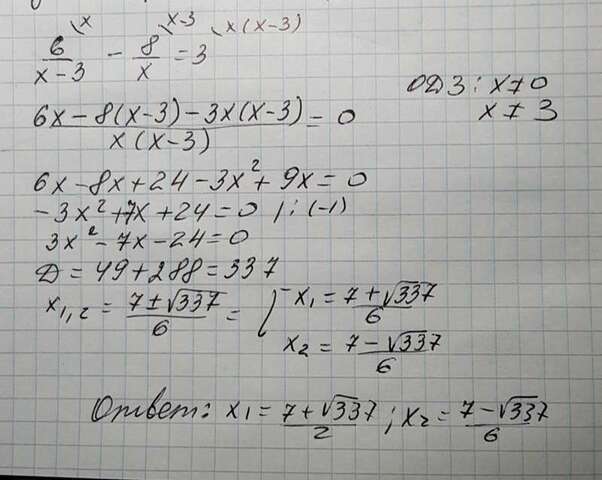 6/(x-3) \x - 8/x \x-3 = 3 \x(x-3)
ОДЗ: x≠0
x≠3
(6x-8(x-3)-3x(x-3))/(x(x-3)) = 0
6x-8x+24-3x²+9x=0
-3x²+7x+24=0 /:(-1)
3x²-7x-24=0
Д=49+288=337
x₁,₂ = (7±√337)/6 = [ x₁ = (7+√337)/6
x₂ = (7-√337)/6
Ответ: x₁ = (7+√337)/2 ; x₂ = (7-√337)/6